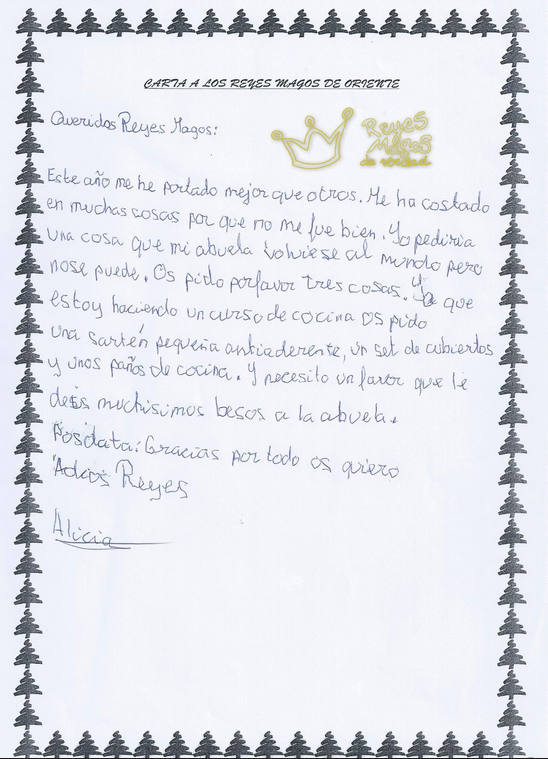 CARTA A LOS REYES MAGOS DE ORIENTE
Queridos Reyes Magos:
Reyes
Magos
de verdad
Este año me he portado mejor que otros. Me ha costado
en muchas cosas por que no me fue bien. Yo pediria
una cosa que mi abuela volviese al mundo pero
nose puede. Os pido porfavor tres cosas. Ya que
estoy haciendo un curso de cocina os pido
una sartén pequeña antiaderente, un set de cubiertos
y unos paños de cocina. Y necesito un favor que le
deis muchisimos besos a la abuela.
Posdata: Gracias por todo os quiero
Adios Reyes
Alicia